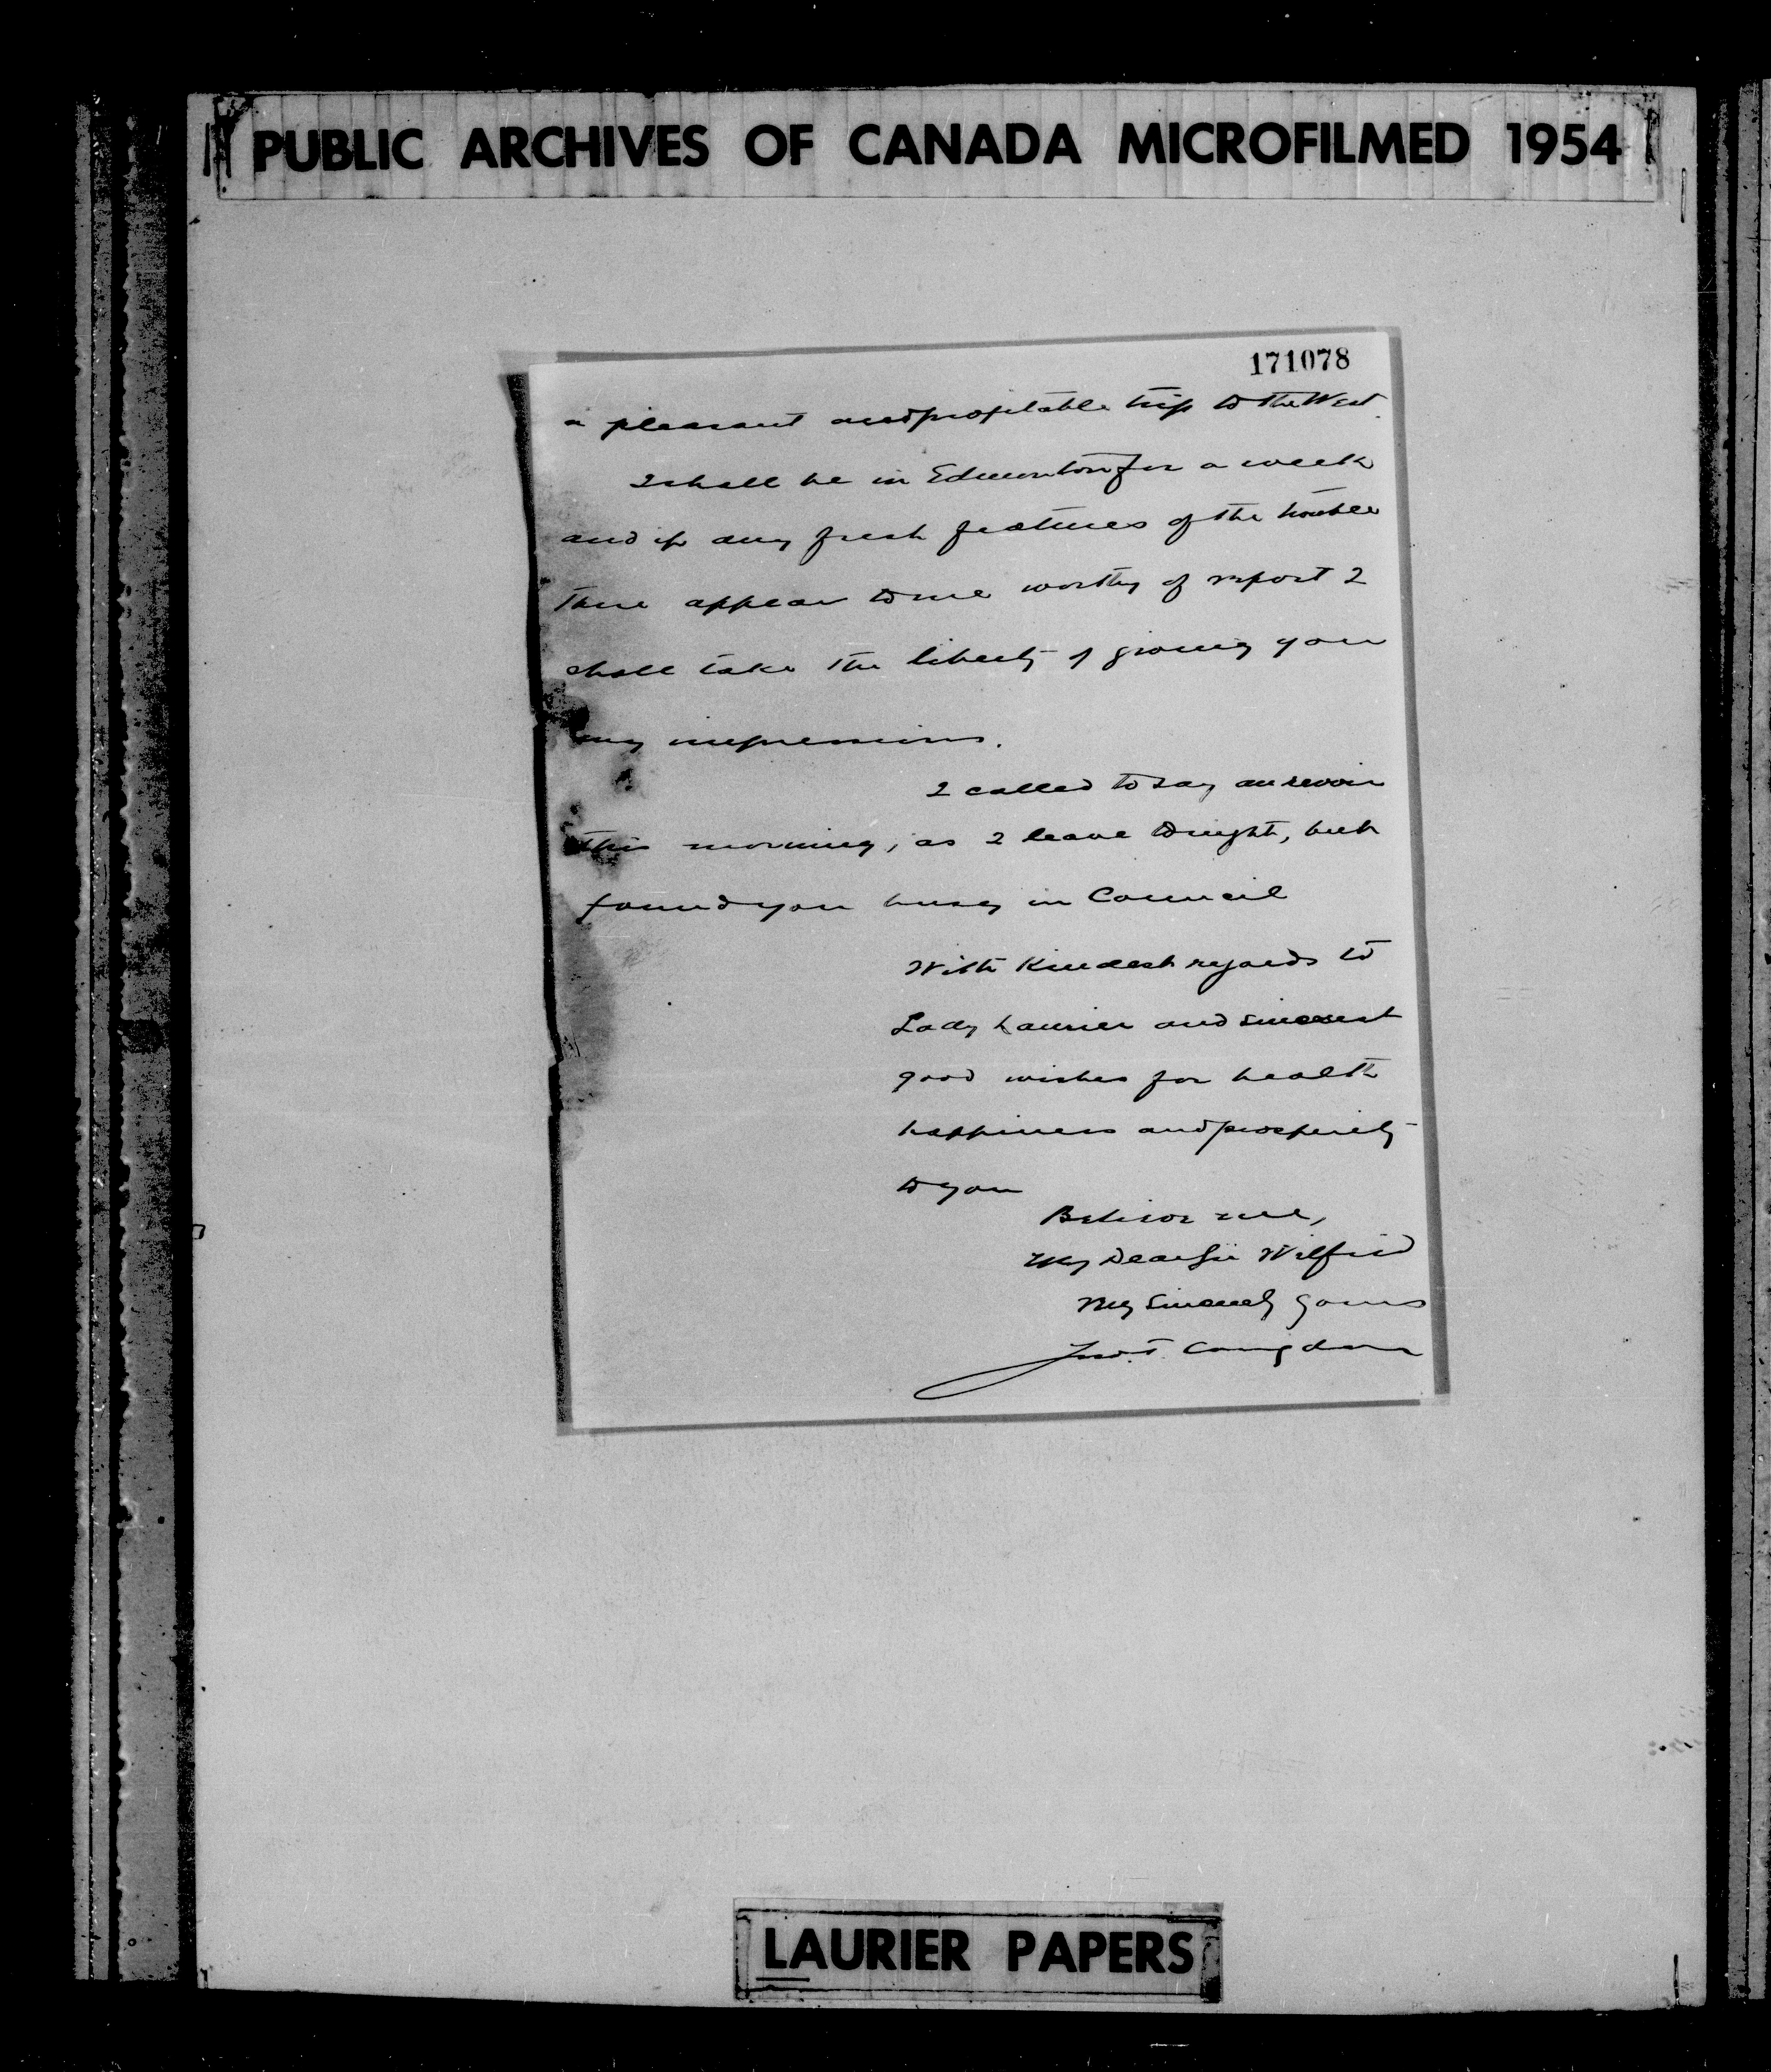 PUBLIC ARCHIVES OF CANADA MICROFILMED 1954
171078
a pleasant and profitable trip to the West.
I shall be in Edmonton for a week
and if any fresh features of the trouble
there appear to me worthy of report I
shall take the liberty of giving you
my impressions.
I called to say au revoir
this morning, as I leave tonight, but
found you busy in Council
With kindest regards to
Lady Laurier and sincerest
good wishes for health
happiness and prosperity
to you
Believe me,
My Dear Sir Wilfrid
Very Sincerely yours
Fred. T. Congdon
LAURIER PAPERS